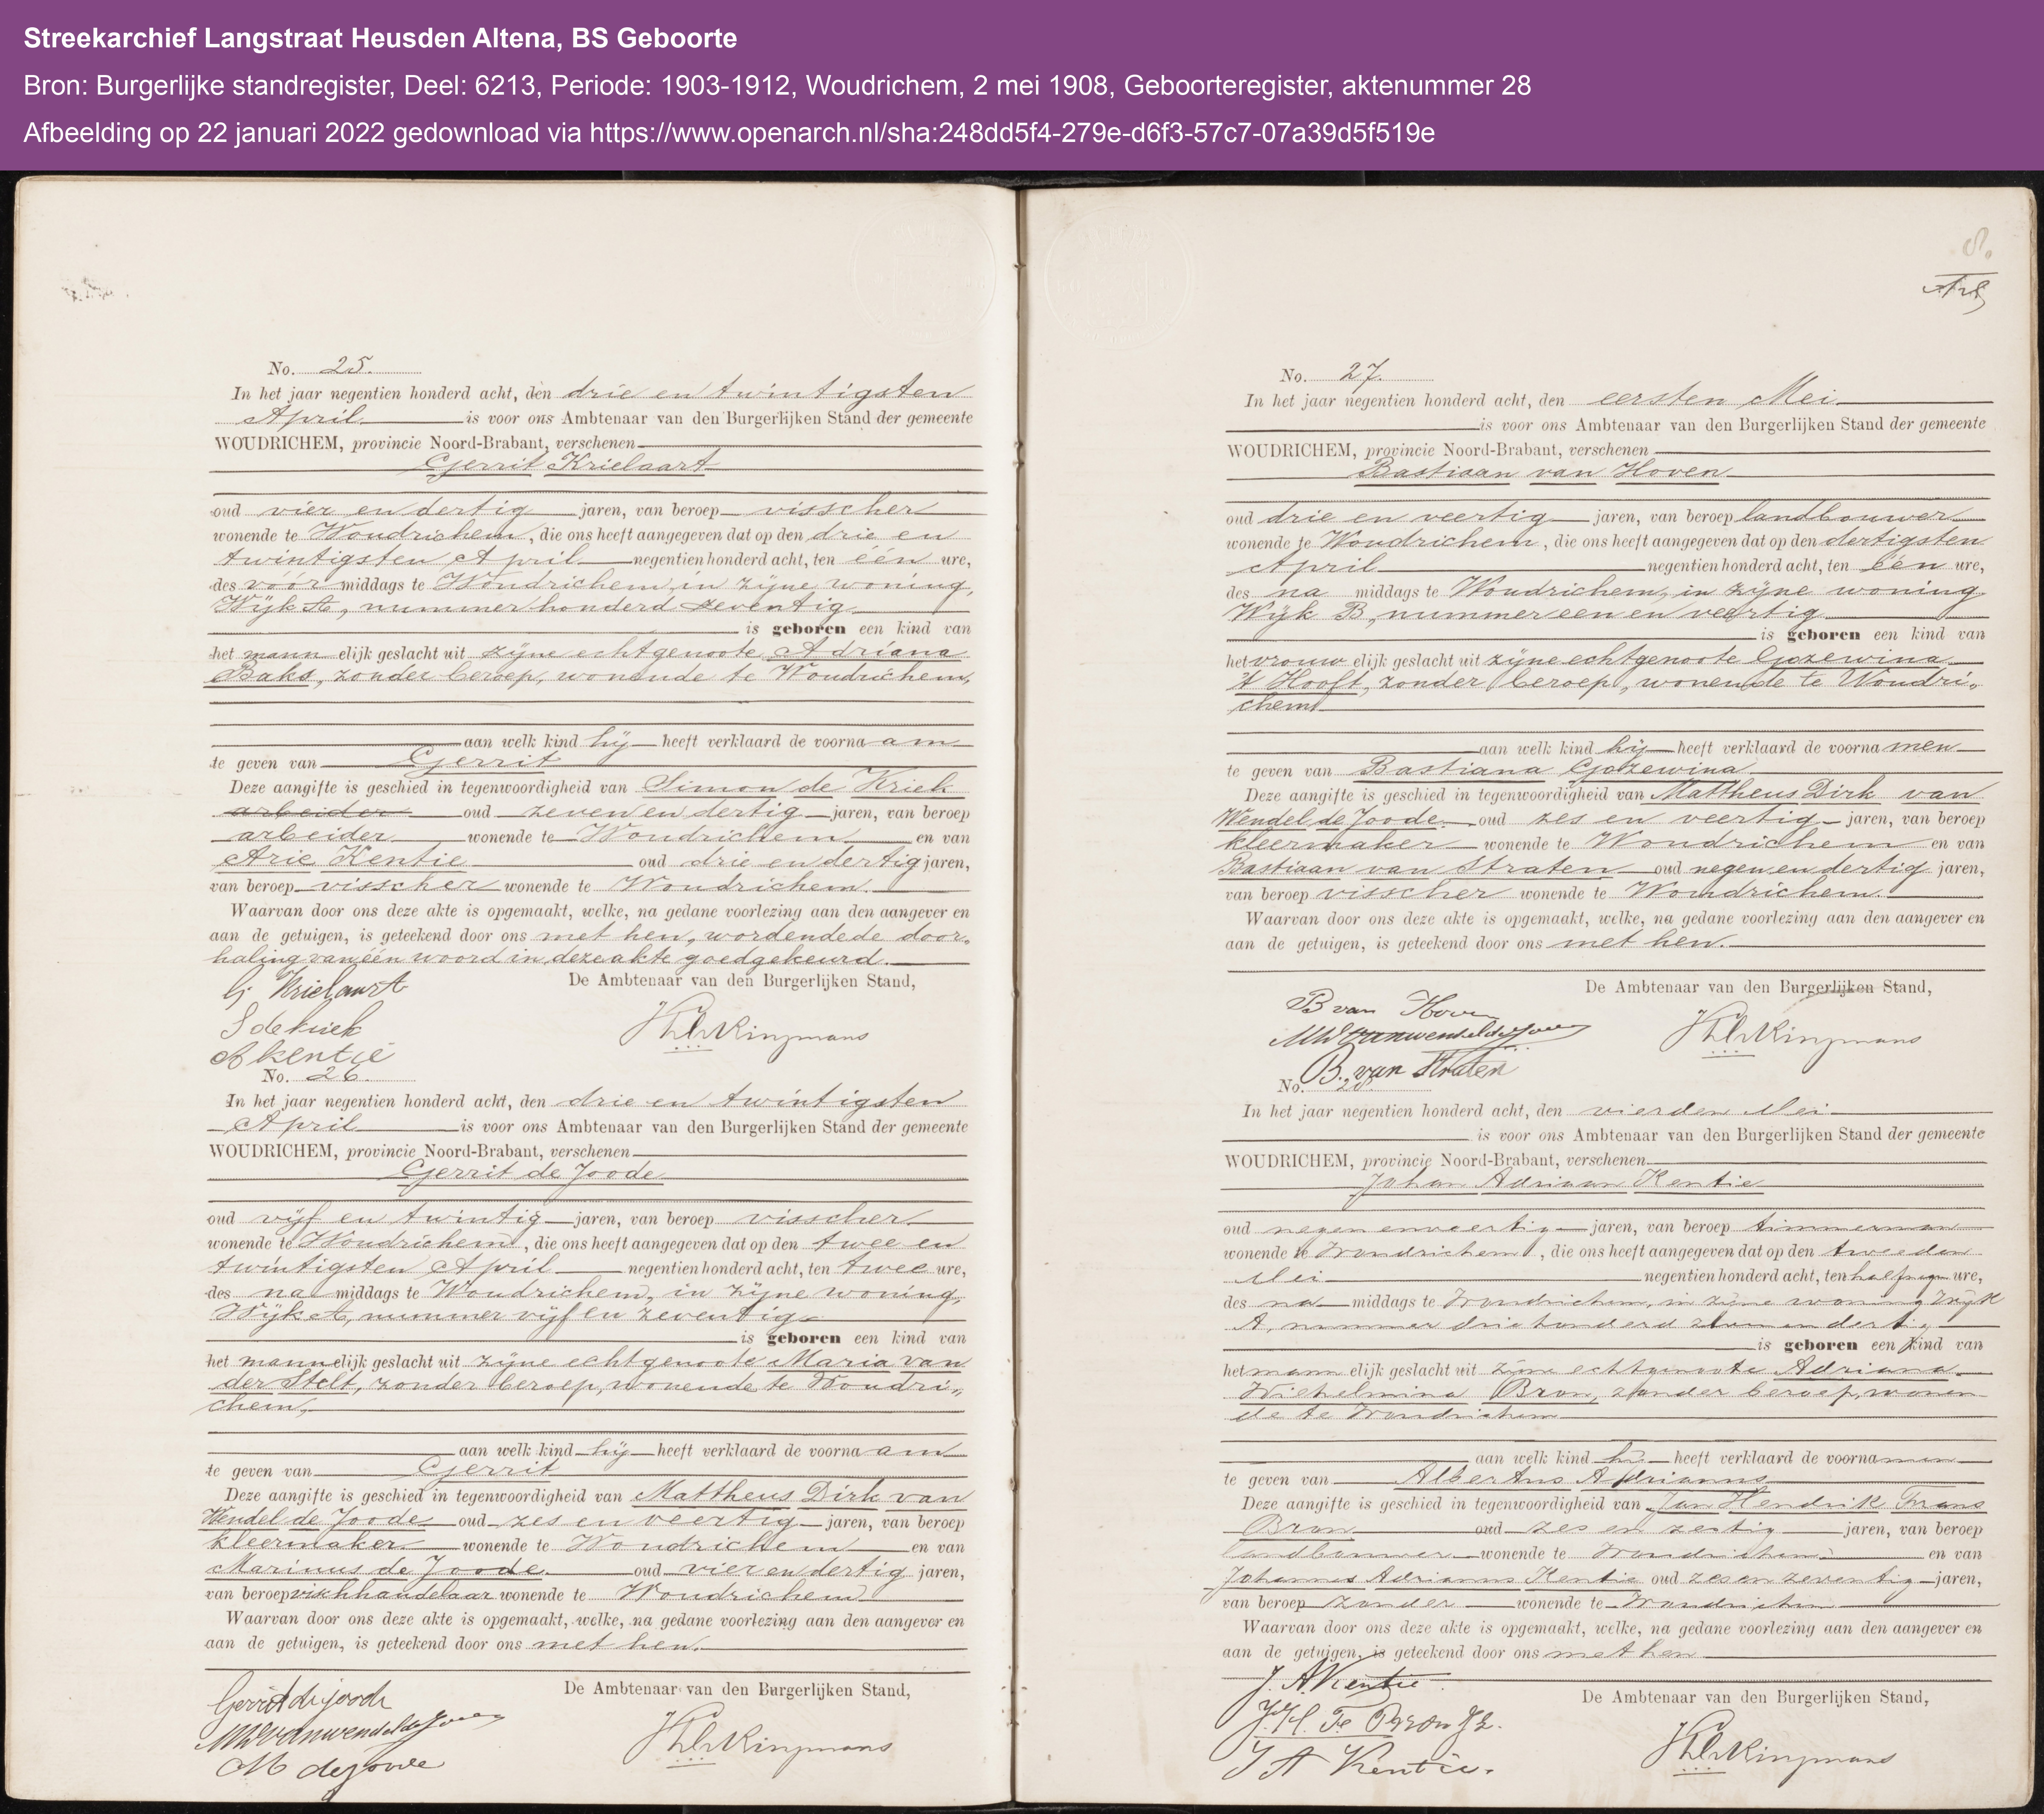 Streekarchief Langstraat Heusden Altena, BS Geboorte
Bron: Burgerlijke standregister, Deel: 6213, Periode: 1903-1912, Woudrichem, 2 mei 1908, Geboorteregister, aktenummer 28
Afbeelding op 22 januari 2022 gedownload via https://www.openarch.nl/sha:248dd5f4-279e-d6f3-57c7-07a39d5f519e
No. 25.
In het jaar negentien honderd acht, den drie en twintigsten
April is voor ons Ambtenaar van den Burgerlijken Stand der gemeente
WOUDRICHEM, provincie Noord-Brabant, verschenen
Gerrit Krielaart
oud vier en dertig jaren, van beroep visscher
wonende te Woudrichem, die ons heeft aangegeven dat op den drie en
twintigsten April negentien honderd acht, ten één ure,
des vóór middags te Woudrichem, in zijne woning,
Wijk A, nummer honderd zeventig
is geboren een kind van
het mann elijk geslacht uit zijne echtgenoote Adriana
Baks, zonder beroep, wonende te Woudrichem,
aan welk kind hij heeft verklaard de voorna am
te geven van Gerrit
Deze aangifte is geschied in tegenwoordigheid van Simon de Kriek
arbeider oud zeven en dertig jaren, van beroep
arbeider wonende te Woudrichem en van
Arie Kentie oud drie en dertig jaren,
van beroep visscher wonende te Woudrichem.
Waarvan door ons deze akte is opgemaakt, welke, na gedane voorlezing aan den aangever en
aan de getuigen, is geteekend door ons met hen, wordende de door-
haling van één woord in deze akte goedgekeurd.
De Ambtenaar van den Burgerlijken Stand,
G Krielaart
S de kriek
A kentie
No. 26.
In het jaar negentien honderd acht, den drie en twintigsten
April is voor ons Ambtenaar van den Burgerlijken Stand der gemeente
WOUDRICHEM, provincie Noord-Brabant, verschenen
Gerrit de Joode
oud vijf en twintig jaren, van beroep visscher
wonende te Woudrichem, die ons heeft aangegeven dat op den twee en
twintigsten April negentien honderd acht, ten twee ure,
des na middags te Woudrichem, in zijne woning,
Wijk A, nummer vijf en zeventig
is geboren een kind van
het mann elijk geslacht uit zijne echtgenoote Maria van
der Stelt, zonder beroep, wonende te Woudri-
chem,
aan welk kind hij heeft verklaard de voorna am
te geven van Gerrit
Deze aangifte is geschied in tegenwoordigheid van Mattheus Dirk van
Wendel de Joode oud zes en veertig jaren, van beroep
kleermaker wonende te Woudrichem en van
Marinus de Joode oud vier en dertig jaren,
van beroep vischhandelaar wonende te Woudrichem
Waarvan door ons deze akte is opgemaakt, welke, na gedane voorlezing aan den aangever en
aan de getuigen, is geteekend door ons met hen.
De Ambtenaar van den Burgerlijken Stand,
Gerrit de joode
M de joode
No. 27.
In het jaar negentien honderd acht, den eersten Mei
is voor ons Ambtenaar van den Burgerlijken Stand der gemeente
WOUDRICHEM, provincie Noord-Brabant, verschenen
Bastiaan van Hoven
oud drie en veertig jaren, van beroep landbouwer
wonende te Woudrichem, die ons heeft aangegeven dat op den dertigsten
April negentien honderd acht, ten één ure,
des na middags te Woudrichem, in zijne woning
Wijk B, nummer een en veertig
is geboren een kind van
het vrouw elijk geslacht uit zijne echtgenoote Gozewina
't Hooft, zonder beroep, wonende te Woudri-
chem
aan welk kind hij heeft verklaard de voorna men
te geven van Bastiana Gozewina
Deze aangifte is geschied in tegenwoordigheid van Mattheus Dirk van
Wendel de Joode oud zes en veertig jaren, van beroep
kleermaker wonende te Woudrichem en van
Bastiaan van Straten oud negen en dertig jaren,
van beroep visscher wonende te Woudrichem.
Waarvan door ons deze akte is opgemaakt, welke, na gedane voorlezing aan den aangever en
aan de getuigen, is geteekend door ons met hen.
De Ambtenaar van den Burgerlijken Stand,
B van Hoven
B. van Straten
No. 28.
In het jaar negentien honderd acht, den vierden Mei
is voor ons Ambtenaar van den Burgerlijken Stand der gemeente
WOUDRICHEM, provincie Noord-Brabant, verschenen
Johan Adriaan Kentie
oud negen en veertig jaren, van beroep timmerman
wonende te Woudrichem, die ons heeft aangegeven dat op den tweeden
Mei negentien honderd acht, ten half ure,
des na middags te Woudrichem, in zijne woning Wijk
A, nummer driehonderd en dertig
is geboren een kind van
het mann elijk geslacht uit zijne echtgenoote Adriana
Wilhelmina Bron, zonder beroep, wonen
de te Woudrichem
aan welk kind hij heeft verklaard de voorna men
te geven van Albertus Adrianus
Deze aangifte is geschied in tegenwoordigheid van Jan Hendrik Frans
Bron oud zes en zestig jaren, van beroep
landbouwer wonende te Woudrichem en van
Johannes Adrianus Kentie oud zes en zeventig jaren,
van beroep zonder wonende te Woudrichem
Waarvan door ons deze akte is opgemaakt, welke, na gedane voorlezing aan den aangever en
aan de getuigen, is geteekend door ons met hen
De Ambtenaar van den Burgerlijken Stand,
J. A. Kentie
J A Kentie.